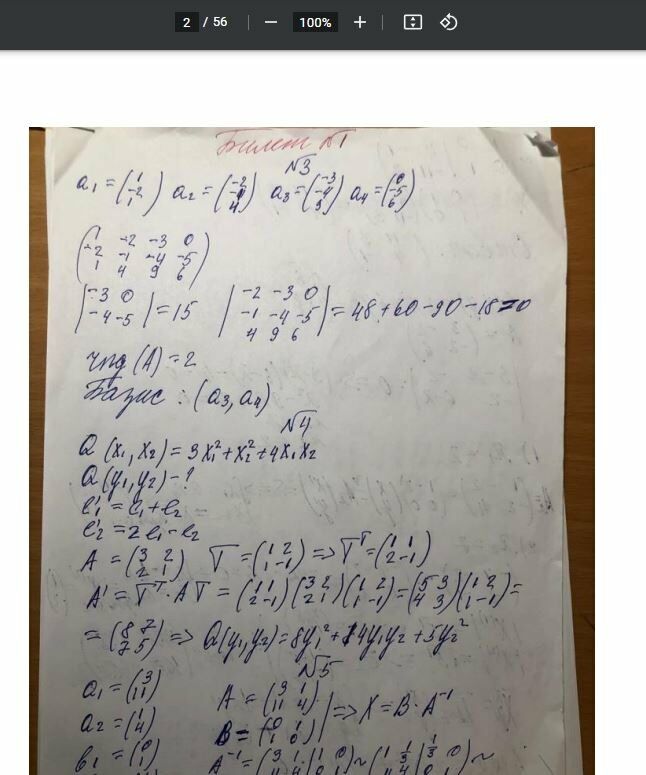 2 / 56 — 100% +
Билет №1
№3
a₁ = (1 -2 1) a₂ = (-2 -1 4) a₃ = (-3 -4 9) a₄ = (0 -5 6)
(1 -2 -3 0
-2 -1 -4 -5
1 4 9 6)
|-3 0
-4 -5| = 15 |-2 -3 0
-1 -4 -5
4 9 6| = 48 + 60 - 90 - 18 = 0
rng (A) = 2
Базис : (a₃, a₄)
№4
Q (x₁, x₂) = 3x₁² + x₂² + 4x₁x₂
Q (y₁, y₂) - ?
e₁' = e₁ + e₂
e₂' = 2e₁ - e₂
A = (3 2
2 1) T = (1 2
1 -1) => Tᵀ = (1 1
2 -1)
A' = Tᵀ · A T = (1 1
2 -1) (3 2
2 1) (1 2
1 -1) = (5 3
4 3) (1 2
1 -1) =
= (8 7
7 5) => Q(y₁, y₂) = 8y₁² + 14y₁y₂ + 5y₂²
№5
a₁ = (3
11) A = (3 1
11 4)
a₂ = (1
4) B = (0 1
1 0) | => X = B · A⁻¹
b₁ = (0
1) A⁻¹ = (3 1 | 1 0
11 4 | 0 1) ~ (1 1/3 | 1/3 0
~